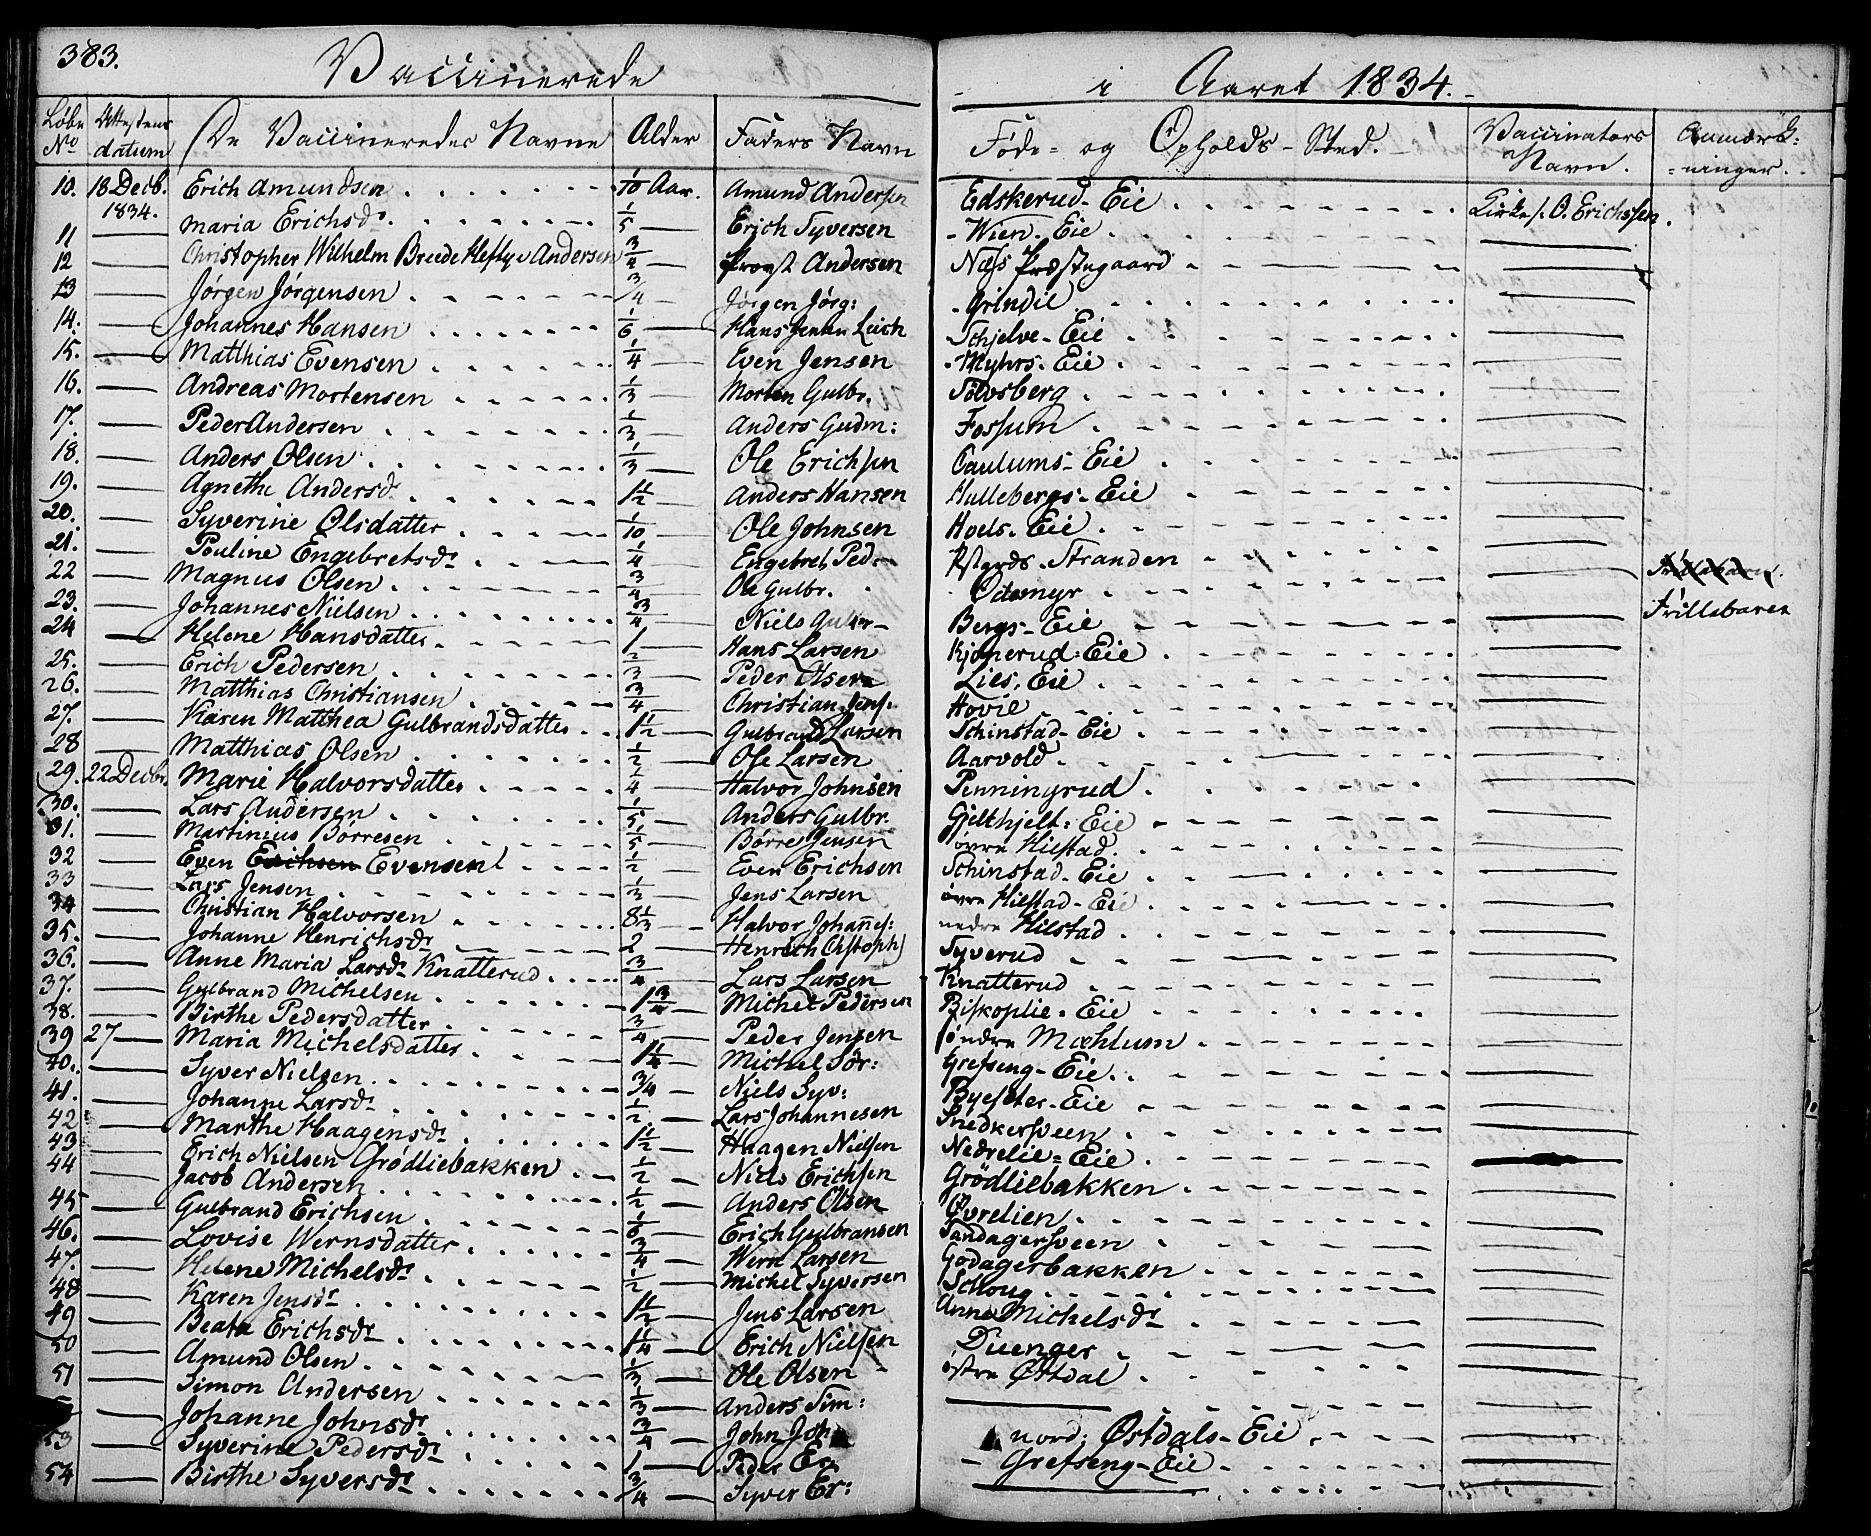 383. Vaccinerede i Aaret 1834.
Løbe No Attestens datum De Vaccineredes Navne Alder Faders Navn Føde- og Opholds-Sted. Vaccinators Navn. Anmærk:ninger.
10. 18 Decb. 1834. Erich Amundsen 1/10 Aar. Amund Andersen Edskerud-Eie Kirkes. O. Erichssen.
11 — Maria Erichsdr. 1/5 — Erich Syversen - Wien-Eie —
12 — Christopher Wilhelm Brede Heftye Andersen 3/4 — Provst Andersen Næs Præstegaard —
13 — Jørgen Jørgensen 3/4 — Jørgen Jørg: - Grindie —
14. — Johannes Hansen 1/6 — Hans Leich Schjelve-Eie —
15. — Matthias Evensen 1/4 — Even Jensen - Myhrs-Eie —
16. — Andreas Mortensen 1/3 — Morten Gulbr. Tolvsberg —
17. — Peder Andersen 1/3 — Anders Gudm: Fossum —
18. — Anders Olsen 1/3 — Ole Erichsen Caulums-Eie —
19. — Agnethe Andersdr 1 1/2 — Anders Hansen Hullebergs-Eie —
20. — Syverine Olsdatter 1/10 — Ole Johnsen Hoels-Eie —
21. — Pouline Engebretsdr 1/4 — Engebret Ped: Stranden —
22 — Magnus Olsen 3/4 Ole Gulbr. Odemyr —
23. — Johannes Nielsen 3/4 — Niels Bergs-Eie — Frillebaren
24 — Helene Hansdatter 1 — Hans Larsen Kjonerud-Eie —
25. — Erich Pedersen 1/3 — Peder Olsen Lies-Eie —
26. — Matthias Christiansen 3/4 — Christian Jens. Hovie —
27. — Karen Matthea Gulbrandsdatter 1 1/2 — Gulbrand Larsen Schinstad-Eie —
28 — Matthias Olsen 1/2 — Ole Larsen Aarvold —
29. 22 Decbr. Marie Halvorsdatter 1/4 — Halvor Johnsen Penningrud —
30. — Lars Andersen 1/5 — Anders Gulbr. Gjelthjelt-Eie —
31. — Martinius Börresen 1/5 — Børre Jensen øvre Hilstad —
32 — Even Erichsen Evensen 1/2 — Even Erichsen Schinstad-Eie —
33 — Lars Jensen 1/3 — Jens Larsen øvre Hilstad-Eie —
34 — Christian Halvorsen 8 1/3 — Halvor Johannes: nedre Hilstad —
35. — Johanne Henrichsdr 2 — Henrich Syverud —
36. — Anne Maria Larsdr Knatterud 3/4 — Lars Larsen Knatterud —
37. — Gulbrand Michelsen 1 3/4 — Michel Pedersen Biskoplie-Eie —
38. — Birthe Pedersdatter 3/4 — Peder Jensen søndre Mæhlum —
39 27 — Maria Michelsdatter 1 1/4 — Michel Sör: Grefseng-Eie —
40. — Syver Nielsen 3/4 — Niels Syv: Byesæter-Eie —
41. — Johanne Larsdr 1/2 — Lars Johannesen Snedkersveen —
42 — Marthe Haagensdr 1 1/2 — Haagen Nielsen Nedrelie-Eie —
43 — Erich Nielsen Grödliebakken 1/2 — Niels Erichsen Grödliebakken —
44 — Jacob Andersen 1/2 — Anders Olsen Øvrelien —
45 — Gulbrand Erichsen 1/6 — Erich Gulbransen Sandagersveen —
46. — Lovise Wernsdatter 3/4 — Wern Larsen Godagerbakken —
47. — Helene Michelsdr 1/2 — Michel Syversen Schoug —
48 — Karen Jensdr 1 1/2 — Jens Larsen Anne Michelsdr —
49 — Beata Erichsdr 1 1/4 — Erich Nielsen Duenger —
50 — Amund Olsen 1/3 — Ole Olsen østre Østdal —
51 — Simon Andersen 1/3 — Anders Sim: — —
— Johanne Johnsdr 3/4 — John nord: Østdals-Eie —
53 — Syverine Pedersdr 1 — Peder Er: - Grefseng-Eie —
54 — Birthe Syversdr 3/4 — Syver Er: — —